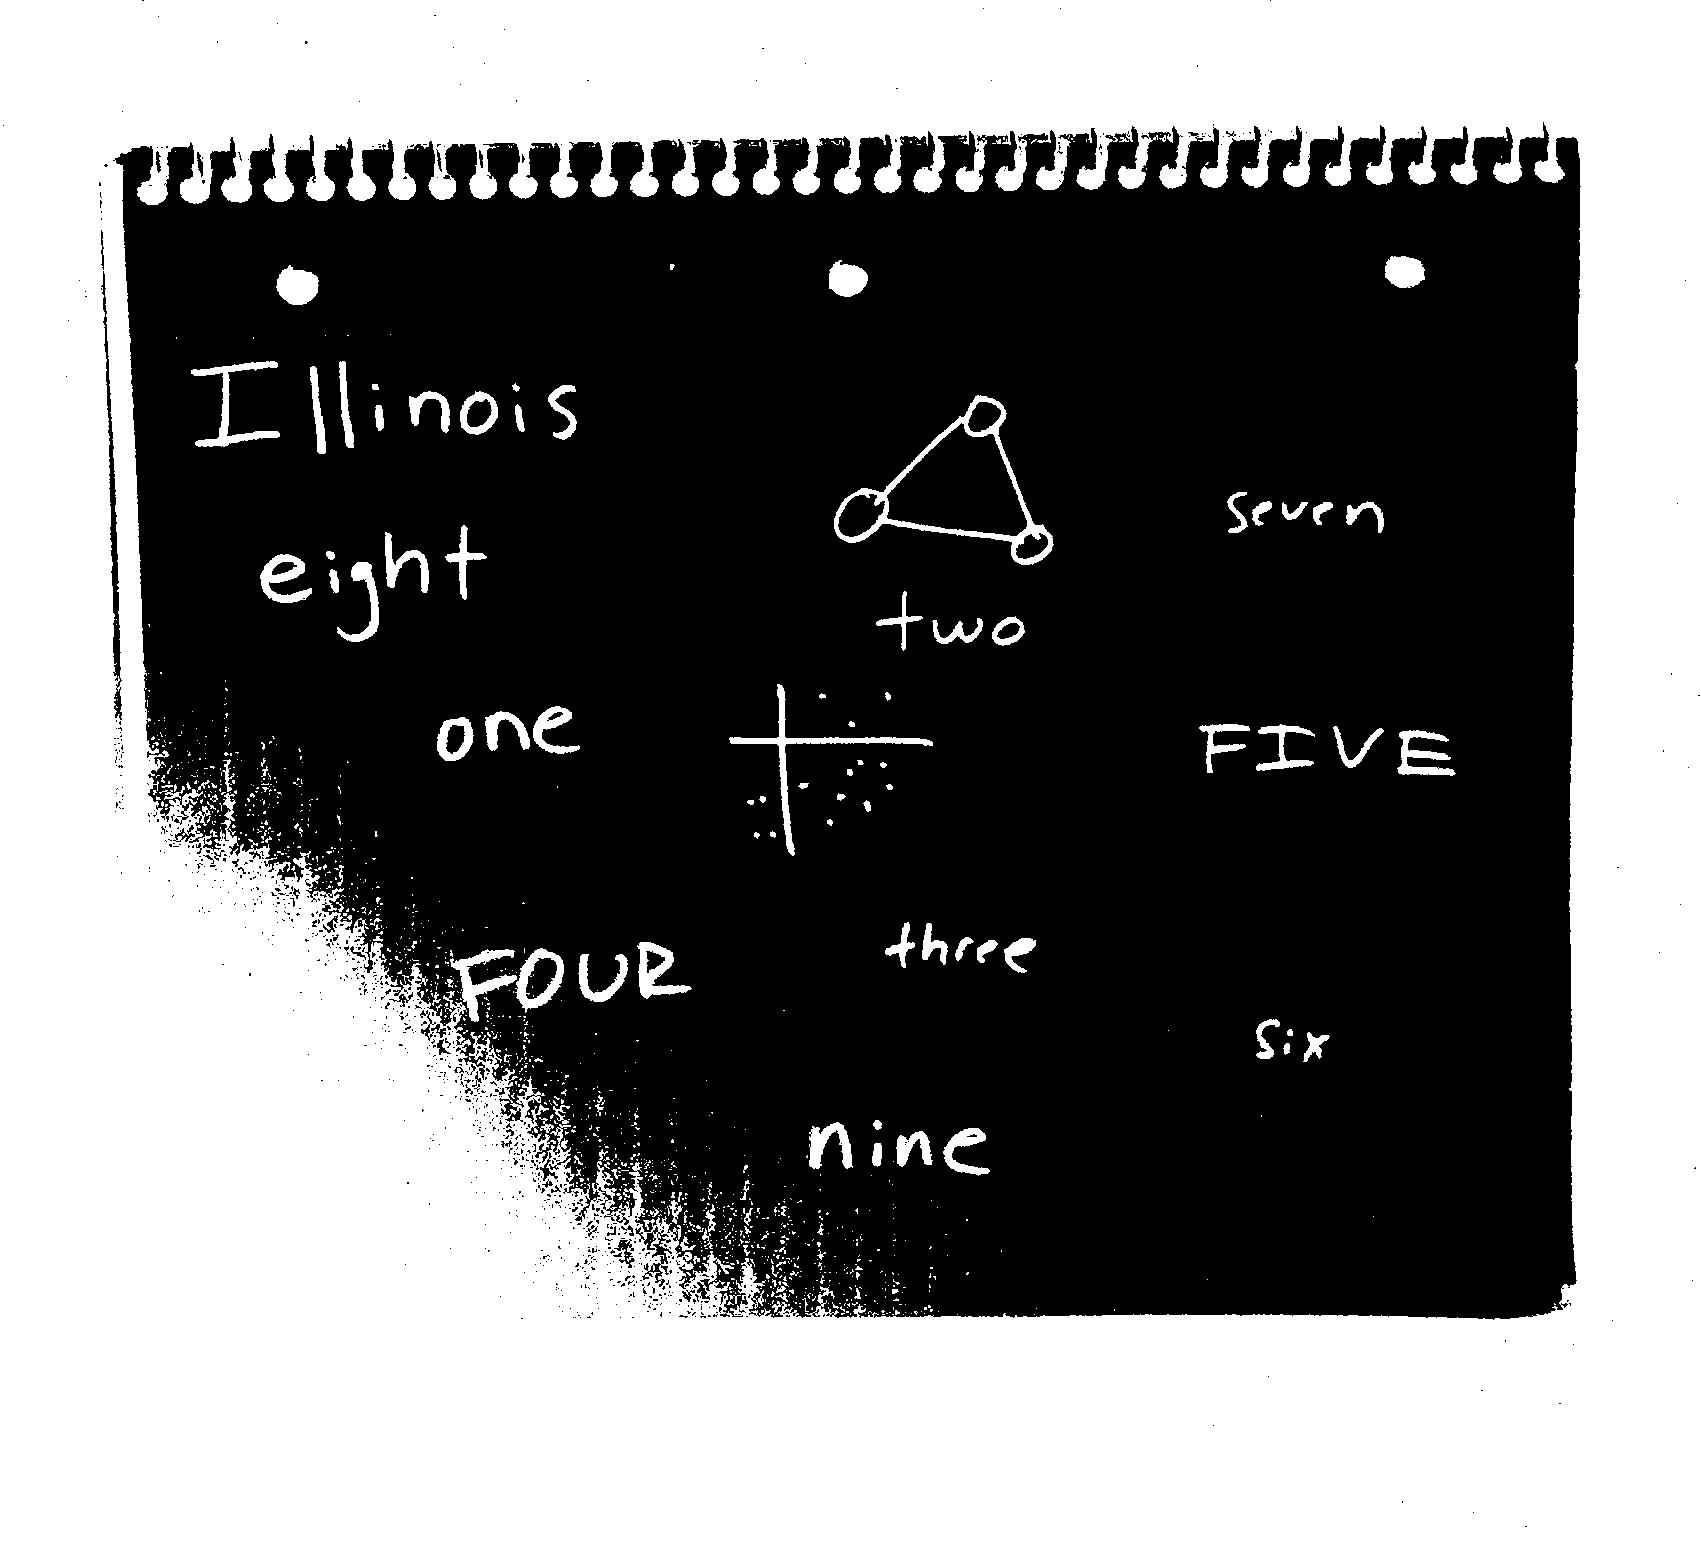 Illinois
seven
eight
two
one
FIVE
FOUR
three
six
nine